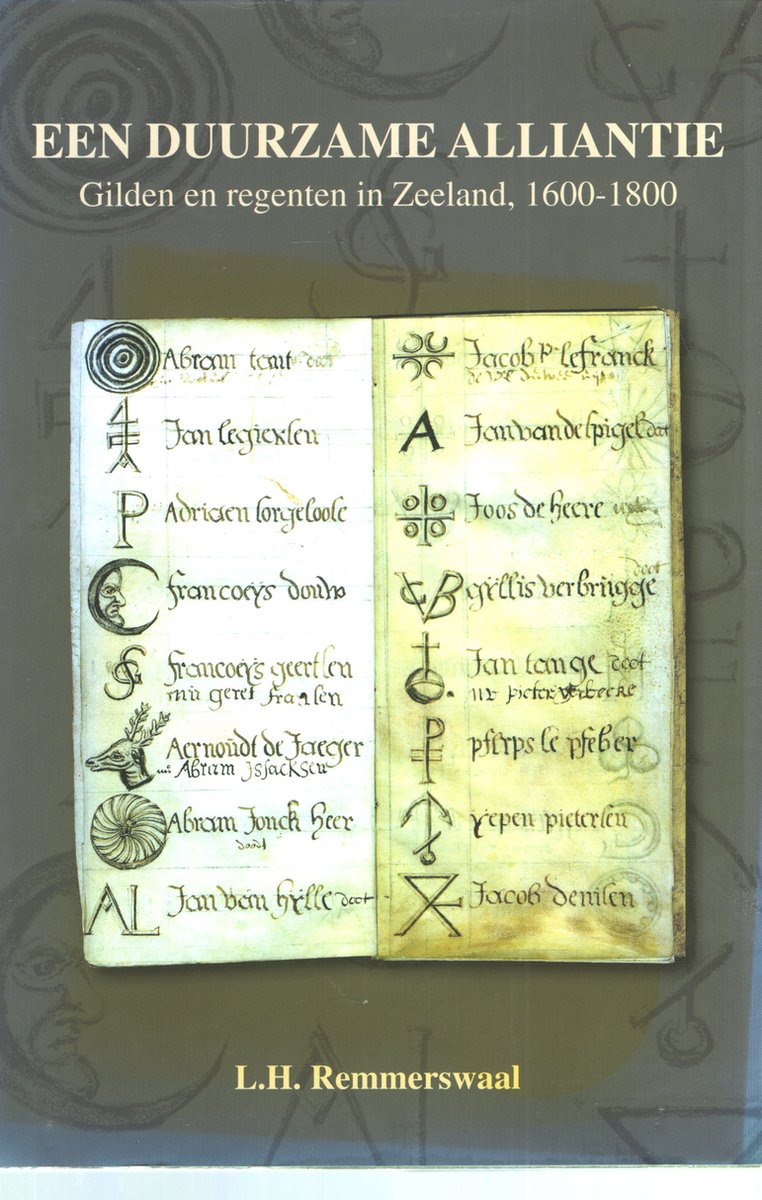 EEN DUURZAME ALLIANTIE
Gilden en regenten in Zeeland, 1600-1800
Abram tant doot
Jan legierlen
P Adriaen sorgeloose
francoeÿs douw
SG francoeÿs geertsen
nu geret fransen
Aernoudt de Jaeger
nu Abram Jsacksen
Abram Jonck heer
doodt
AL Jan van hÿlle doot
Jacob lefranck
A Jan van de spigel doot
Joos de heere
doot
VB gÿllis verbrugge
Jan tange doot
nu pieter
le
pietersen
Jacob denisen
L.H. Remmerswaal